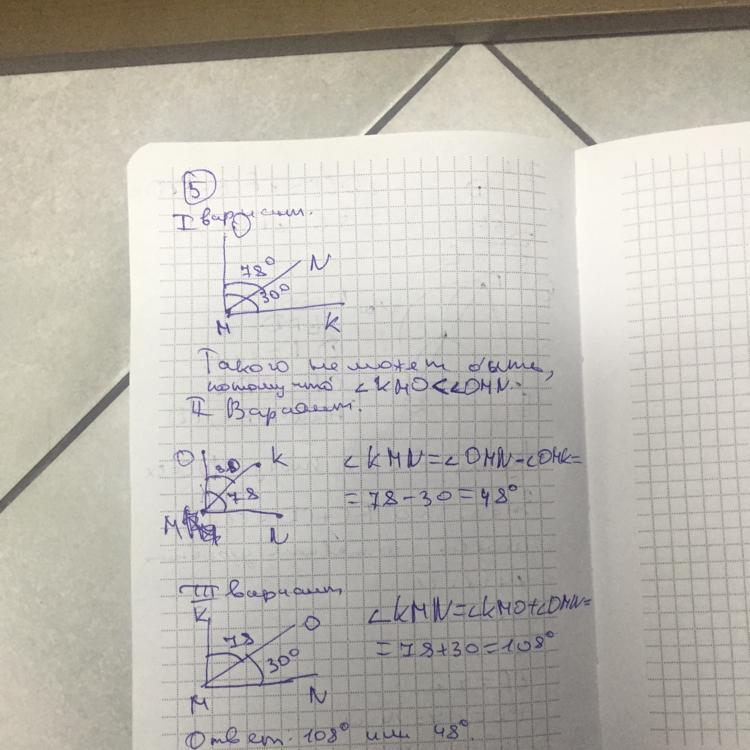 5
I вариант.
O
78° N
30°
M K
Такого не может быть,
потому что ∠KMO<∠OMN.
II Вариант.
O 30 K ∠KMN=∠OMN-∠OMK=
78 =78-30=48°
M N
III вариант
K ∠KMN=∠KMO+∠OMN=
78 O =78+30=108°
30°
M N
Ответ. 108° или 48°.